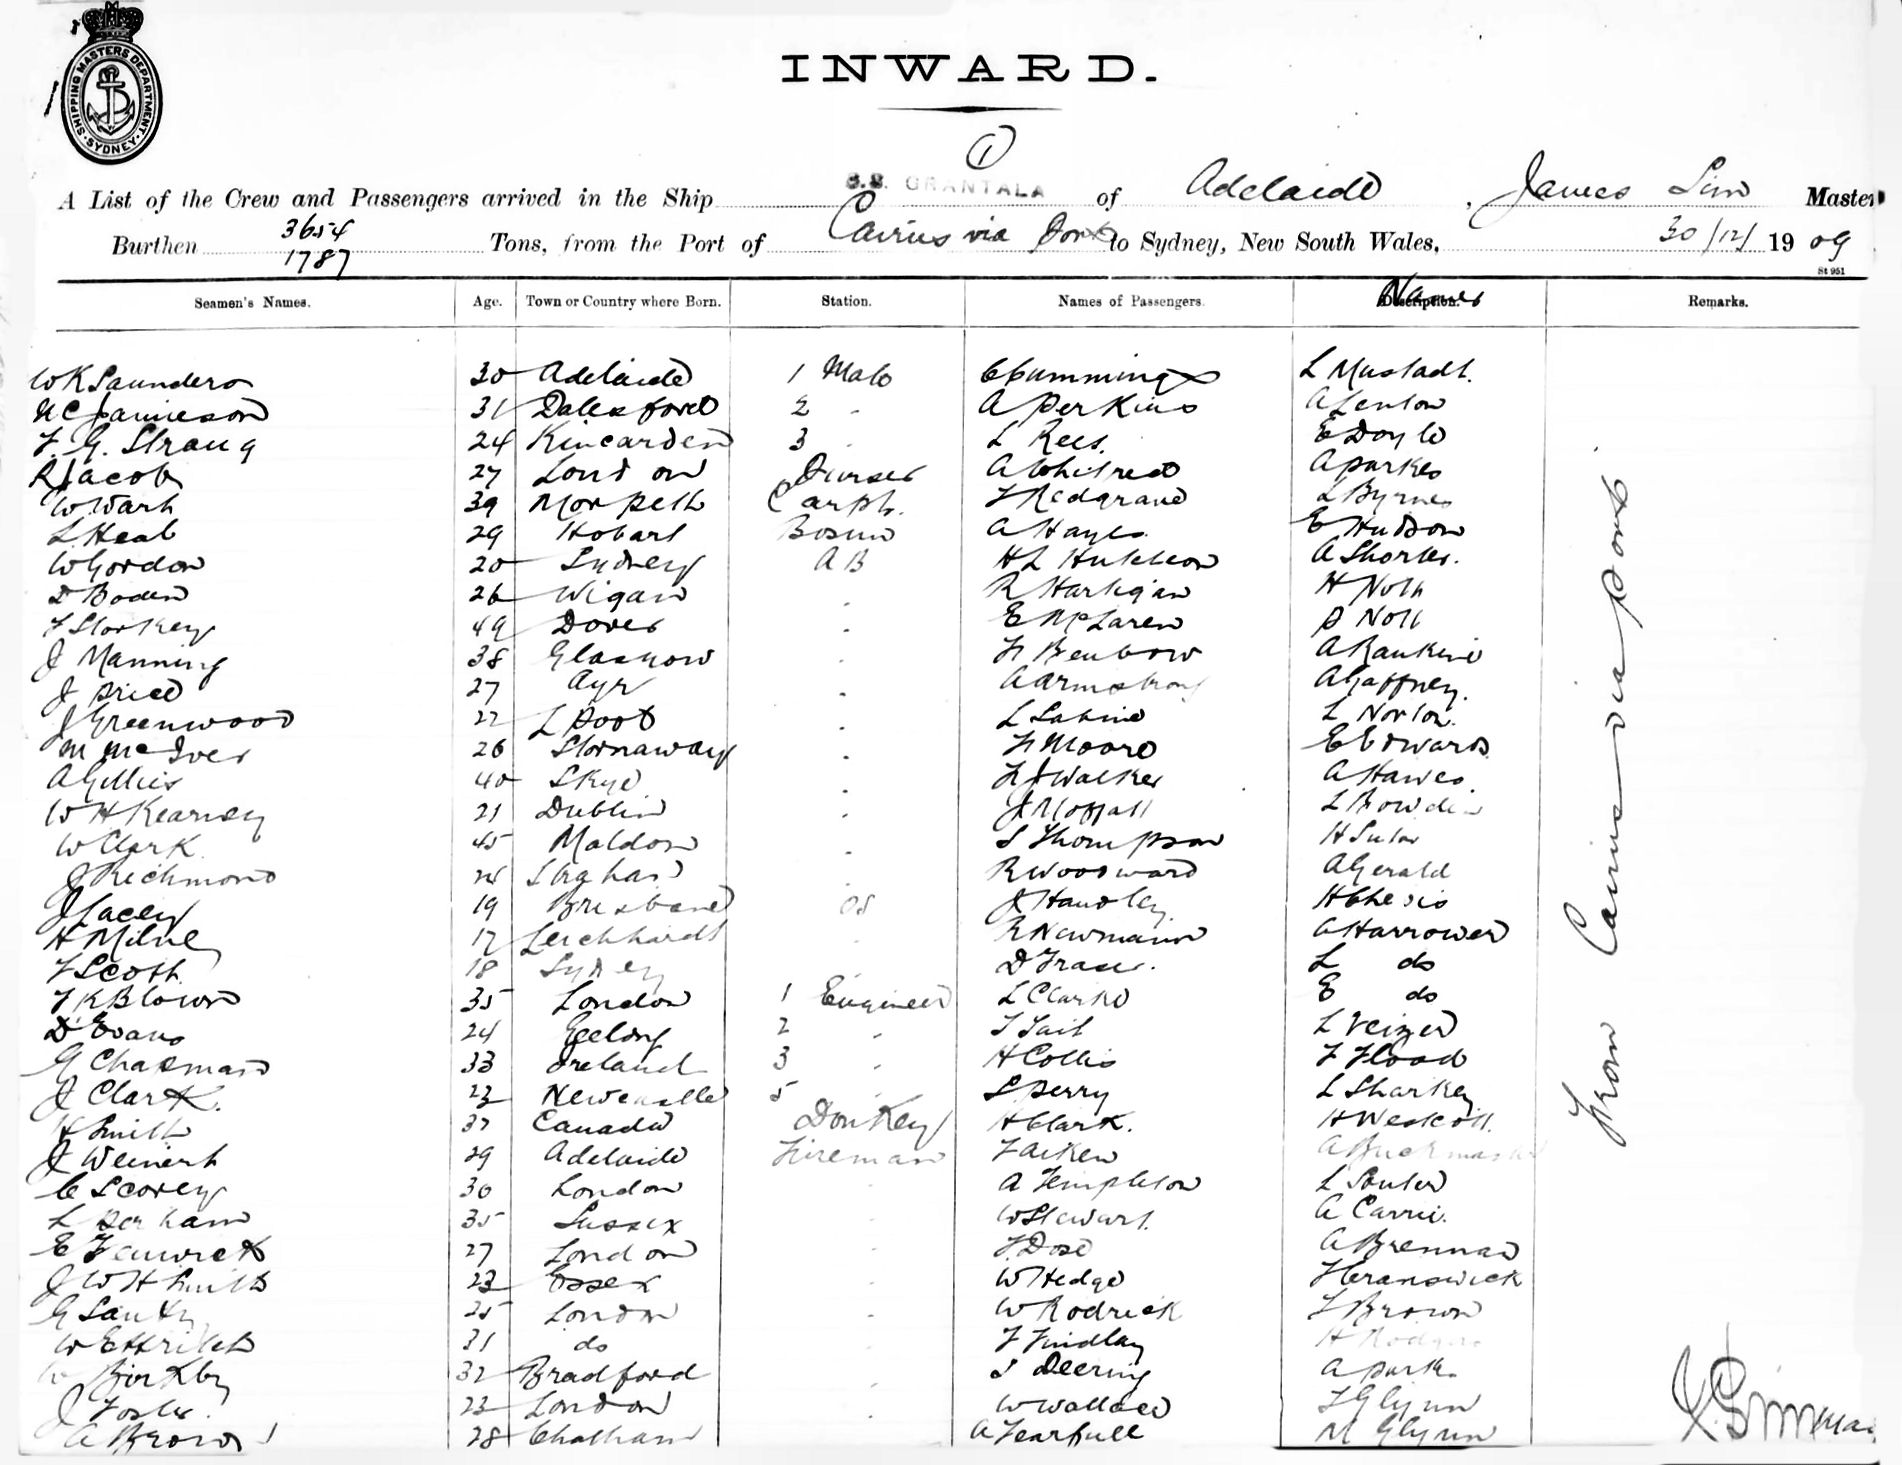 SHIPPING MASTERS DEPARTMENT
SYDNEY
INWARD.
1
A List of the Crew and Passengers arrived in the Ship S.S. GRANTALA of Adelaide, James Sim Master
Burthen 3654 1787 Tons, from the Port of Cairns via Ports to Sydney, New South Wales, 30/12/ 1909
St 951
Seamen's Names. Age. Town or Country where Born. Station. Names of Passengers. Names Remarks.
W K Saunders 30 Adelaide 1 Mate C Cummings L Mustadt.
N C Jamieson 31 Dalesford 2 - A Perkins A Lenton
F. G. Strang 24 Kincarden 3 - L Rees. E Doyle
R Jacob 27 London Purser A Whitred A Parkes
W Wark 39 Morpeth Carptr. F Redgrave L Byrnes
L Heab 29 Hobart Bosun A Hayes E Hudson
W Gordon 20 Sydney A B H L Hutcheon A Shorter.
D Boden 26 Wigan - R Hartigan H Noth
F Storkey 49 Dover - E McLaren P Noll
J Manning 38 Glasgow - F Benbow A Rankine
J Price 27 Ayr - A Armstrong A Gaffney.
J Greenwood 22 L Pool - L Sabine L Norton.
M McIver 26 Stornaway - F Moore E Edwards
A Gillies 40 Skye - F J Walker A Hawes.
W H Kearney 21 Dublin - J Moffatt L Bowden
W Clark 45 Maldon - S Thompson H Suter
J Richmond 24 - R Woodward A Gerald
J Lacey 19 Brisbane OS J Handley
H Milne 17 Leichhardt - R Newmann A Harrower
F Scott 18 Sydney - D Fraser. L do
F K Blown 35 London 1 Engineer L Clarke E do
D Evans 24 Geelong 2 - S Tait L Veizer
G Chapman 33 Ireland 3 - H Collis F Flood
J Clark. 23 Newcastle 5 - S Perry L Sharkey
H Smith 37 Canada Donkey H Clark. H Westcott.
J Weinert 29 Adelaide Fireman F Aiken A Buckmaster
C Scovey 30 London - A Templeton L Souter
L Perham 35 Sussex - W Stewart. A Carrie.
E Fenwick 27 London - F. Dose A Brennan
J W H Smith 23 Essex - W Hedge F Cranswick
G Santy 25 London - W Rodrick F Brown
W Ettritch 31 do F Findlay H Rodgers
W Birkby 32 Bradford - S Deering A Park
J Foster. 23 London - W Wallace F Glynn
A Brown 28 Chatham A Fearfull M Glynn
From Cairns via Ports